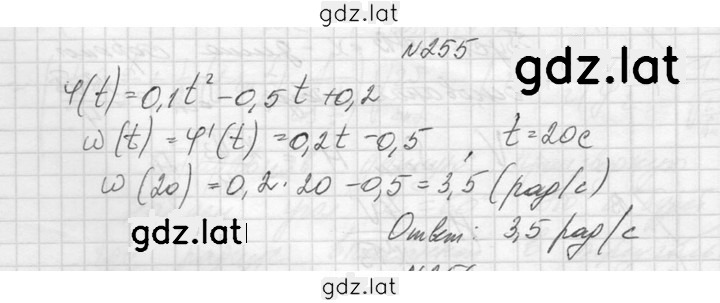 gdz.lat
№255
gdz.lat
φ(t)=0,1t²-0,5t+0,2
ω(t)=φ'(t)=0,2t-0,5, t=20c
ω(20)=0,2·20-0,5=3,5(рад/с)
gdz.lat
Ответ: 3,5 рад/с
gdz.lat